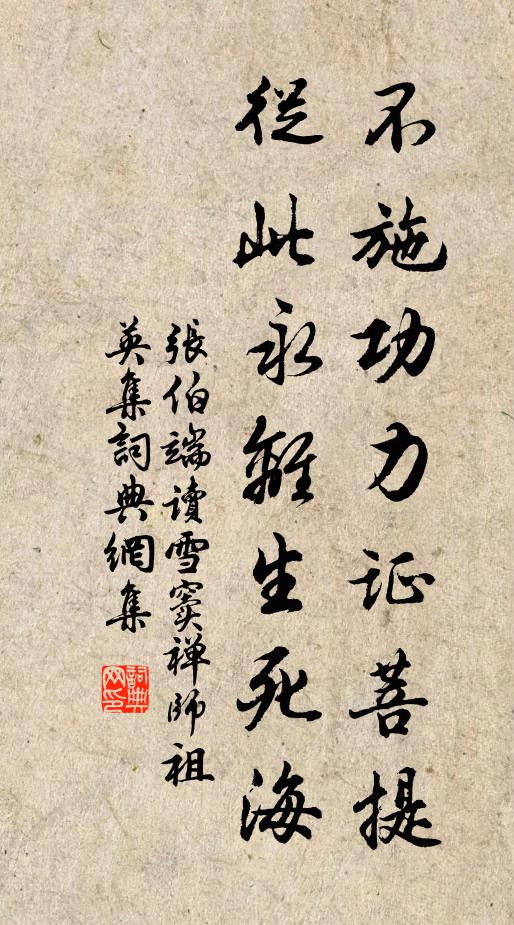 不施功力证菩提
從此永離生死海
張伯端讀雪竇禅師祖
英集詞典網集
詞典网印